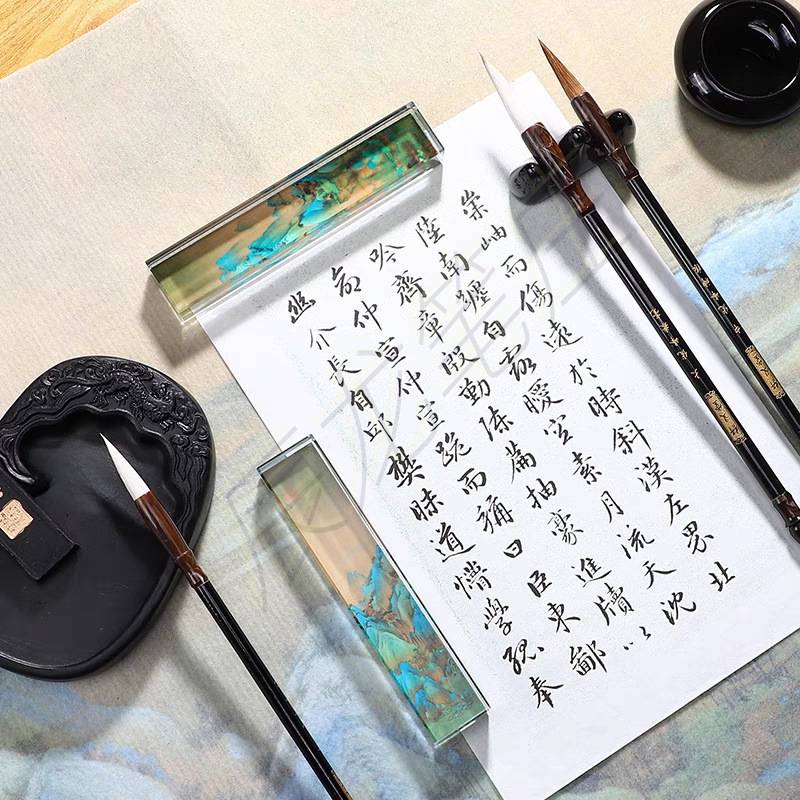 崇岫而傷遠於時斜漢左界北
陸南躔白露曖空素月流天沈
吟齊章殷勤陳篇抽豪進牘以
命仲宣仲宣跪而稱曰臣東鄙
幽介長自邱樊昧道懵學孤奉